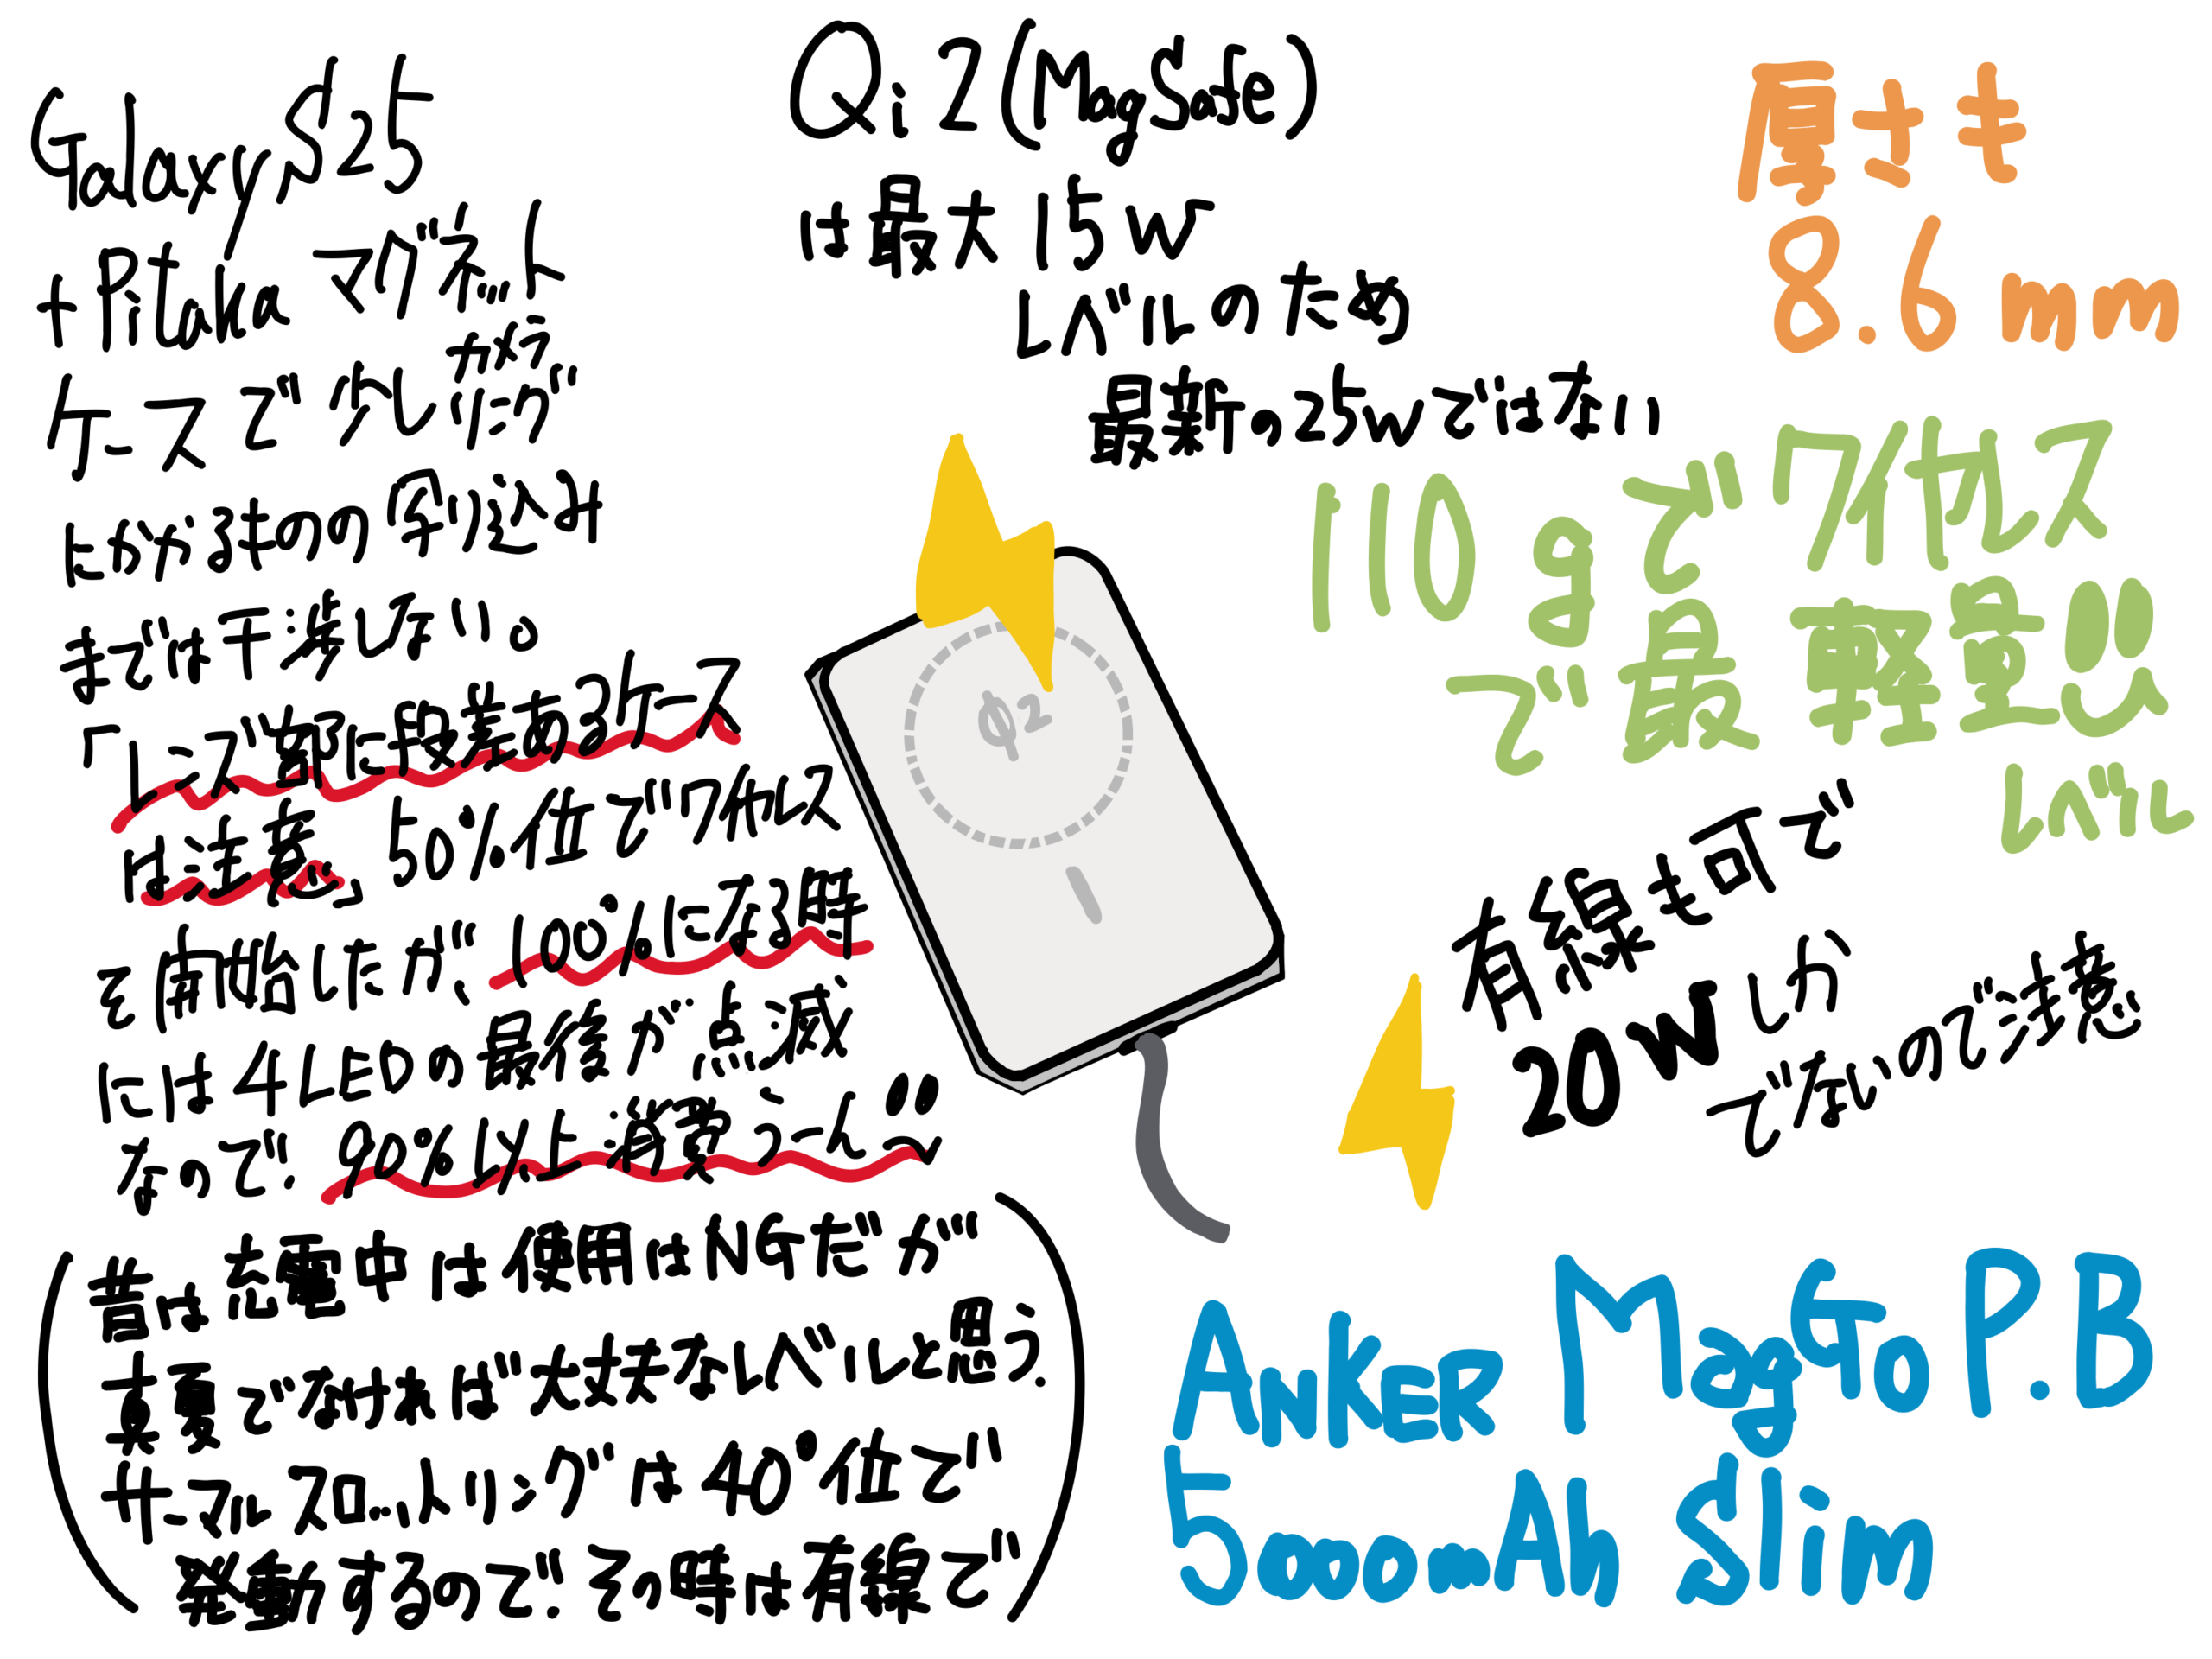 Galaxy S25
+Pitaka マグネット
ケースで少しカメラリング
にかかるものの写り込み
までは干渉しない。
「レンズ部に段差あるケース
は注意」50%位でワイヤレス
を開始したが、100%になる時
には4LEDの最後が点滅
なので、90%以上消費うーん〜
(昔は充電中は使用はNGだが
真夏でなければ大丈夫なレベルと思う.
サーマルスロットリングは40°位で
発動するので、その時は有線で)
Qi2(MagSafe)
は最大15W
レベルのため
最新の25Wではない
厚さも
8.6mm
110gでワイヤレス
で最軽量
レベル
有線も可で
20Wしか
でないので注意
ANKER MagGo P.B
5000mAh Slim